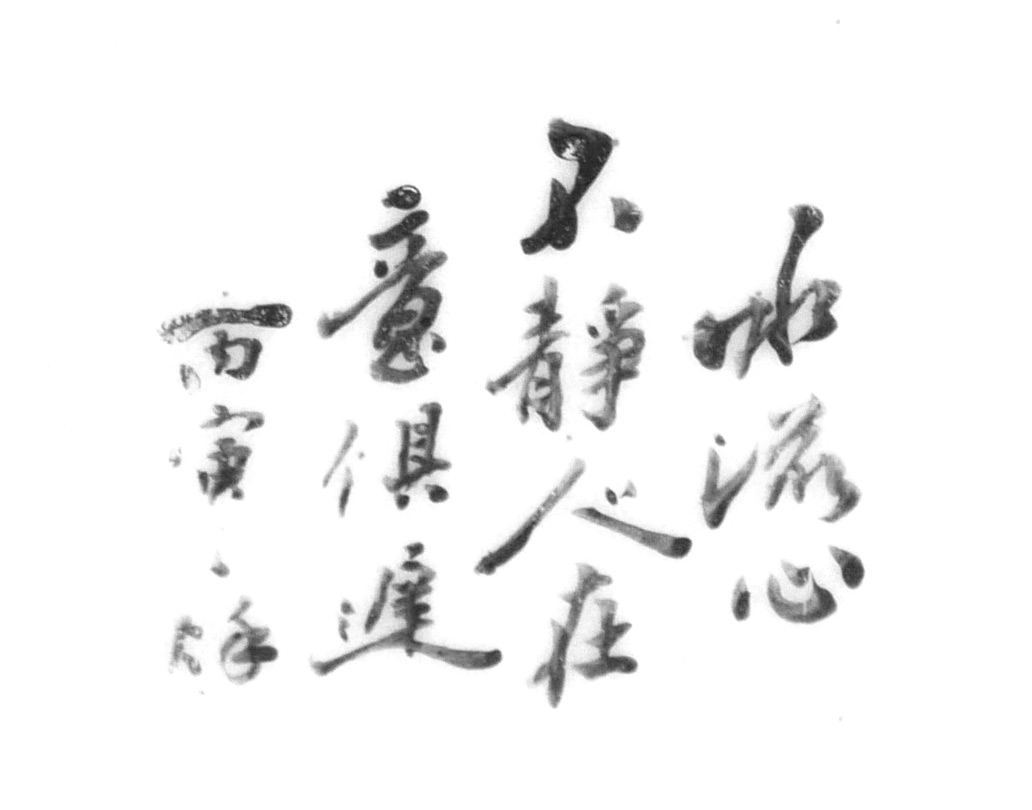 水流心
不靜人在
意俱遲
丙寅